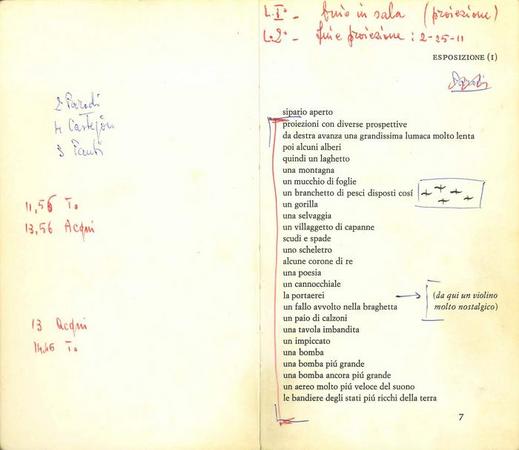 L.1ª- buio in sala (proiezione)
L.2ª- fine proiezione: 2-25-11
ESPOSIZIONE (I)
Parodi
2 Parodi
4 Castejon
3 Fanti
11,56 T.
13,56 Acqui
13 Acqui
14,46 T.
sipario aperto
proiezioni con diverse prospettive
da destra avanza una grandissima lumaca molto lenta
poi alcuni alberi
quindi un laghetto
una montagna
un mucchio di foglie
un branchetto di pesci disposti cosí
un gorilla
una selvaggia
un villaggetto di capanne
scudi e spade
uno scheletro
alcune corone di re
una poesia
un cannocchiale
la portaerei
(da qui un violino
un fallo avvolto nella braghetta
molto nostalgico)
un paio di calzoni
una tavola imbandita
un impiccato
una bomba
una bomba piú grande
una bomba ancora piú grande
un aereo molto piú veloce del suono
le bandiere degli stati piú ricchi della terra
7